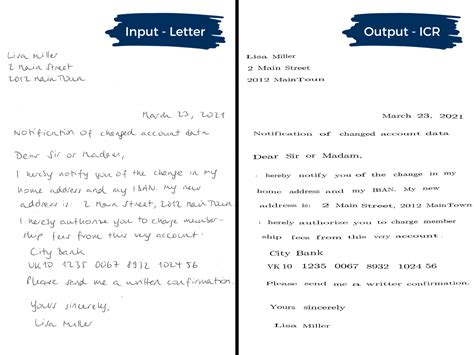 Input - Letter
Lisa Miller
2 Main Street
2012 Main Toun
March 23, 2021
Notification of changed account data
Dear Sir or Madam,
I heresy notify you of the change in my
home address and my IBAN. My new
address is: 2 Main Street, 2012 Main Toun
I heresy authorize you to charge member-
ship fees from this very account:
City Bank
VK10 1235 0067 8932 1024 56
Please send me a written confirmation.
Yours sincerely,
Lisa Miller
Output - ICR
Lisa Miller
2 Main Street
2012 MainToun
March 23, 2021
Notification of changed account data
Dear Sir or Madam,
i hereby notify you of the change in my
home address and my IBAN. My new
address is: 2 Main Street, 2012 MainTown
i hereby authorize you to charge member
ship fees from this very account:
City Bank
VK10 1235 0067 8932 1024 56
Please send me a written confirmation.
Yours sincerely
Lisa Miller